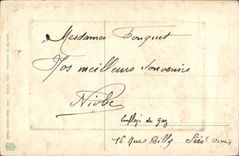 Mesdames Fouquet
Nos meilleurs Souvenirs
Niobé
Employé du Gaz
16 Rue Billy